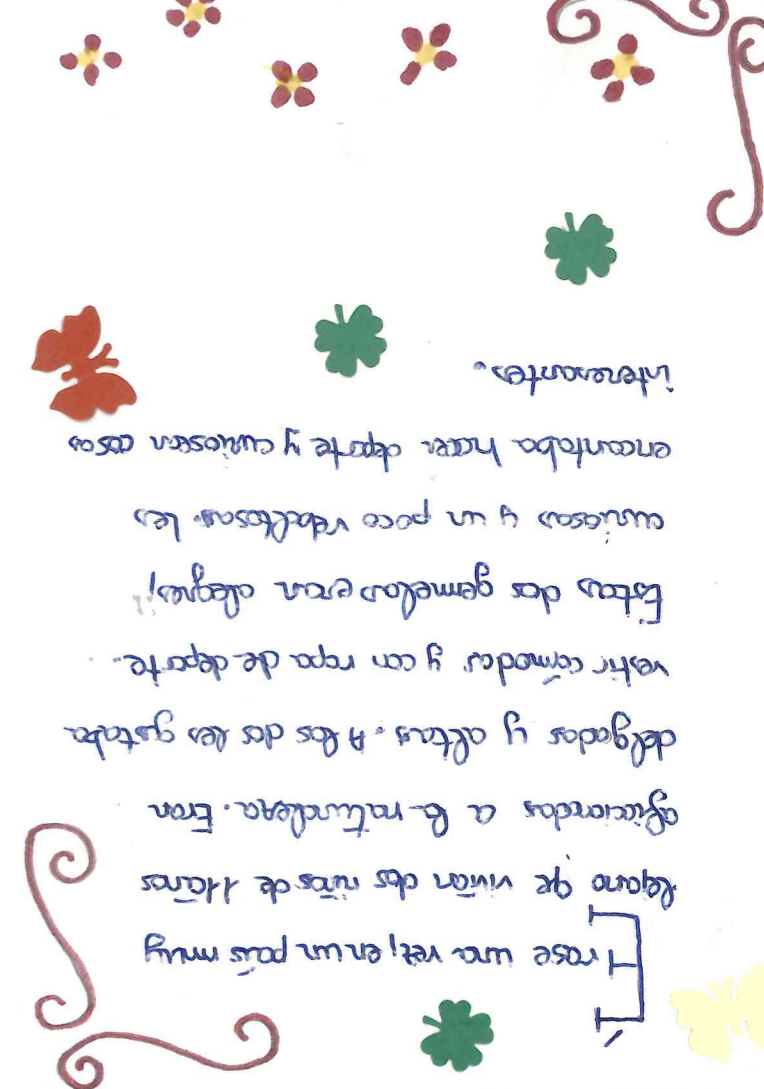 Érase una vez, en un país muy
lejano qe vivían dos niñas de 11 años
aficcionadas a la naturaleza. Eran
delgadas y altas. A las dos les gustaba
vestir cómodas, y con ropa de deporte.
Estas dos gemelas eran alegres,
curiosas y un poco vdaltosas. Les
encantaba hacer deporte y curiosear cosas
interesantes.